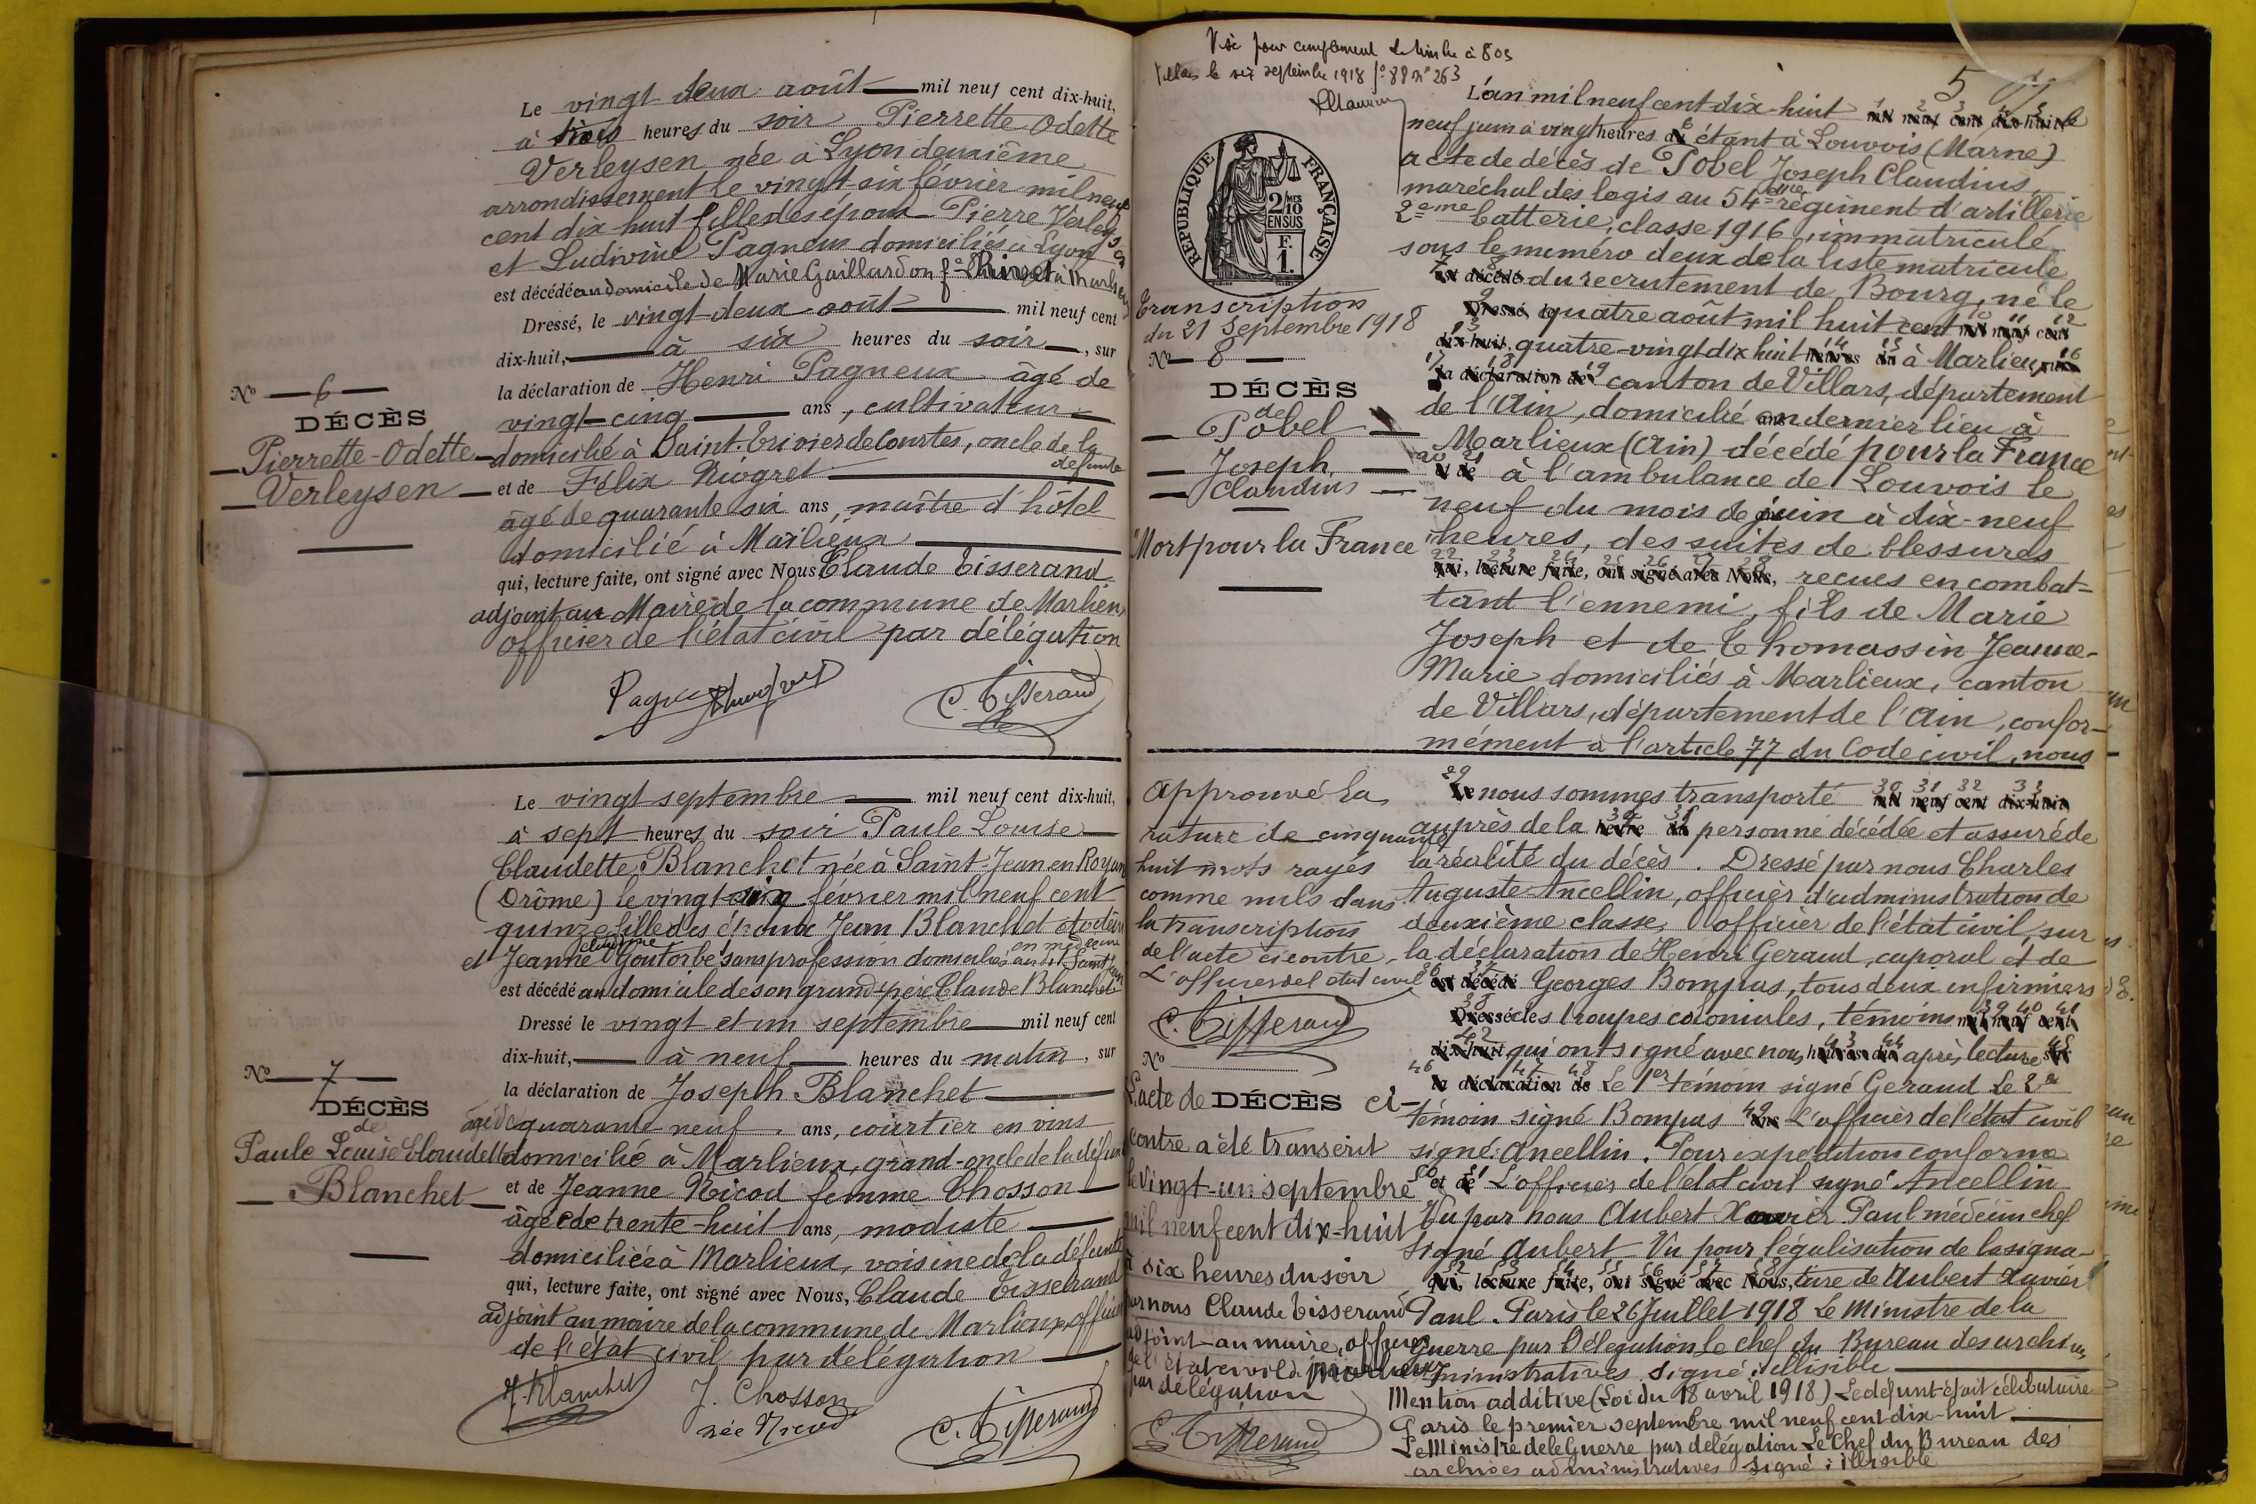 Le vingt deux août mil neuf cent dix-huit,
à trois heures du soir Pierrette-Odette
Verleysen née à Lyon deuxième
arrondissement le vingt-six février mil neuf
cent dix-huit fille des époux Pierre Verleysen
et Ludivine Pagneux domiciliés à Lyon
est décédée au domicile de Marie Gaillardon à Marlieux
Dressé, le vingt-deux août mil neuf cent
dix-huit, à six heures du soir, sur
la déclaration de Henri Pagneux âgé de
vingt-cinq ans, cultivateur
domicilié à Saint-Trivier de Courtes, oncle de la
défunte
et de Félix Niogret
âgé de quarante six ans, maître d'hôtel
domicilié à Marlieux
qui, lecture faite, ont signé avec Nous Claude Tisserand,
adjoint au Maire de la commune de Marlieux
officier de l'état civil par délégation
C. Tisserand
No 6
DÉCÈS
Pierrette-Odette
Verleysen
Le vingt septembre mil neuf cent dix-huit,
à sept heures du soir Paule Louise
Claudette Blanchet née à Saint-Jean en Royans
(Drôme) le vingt février mil neuf cent
quinze fille des époux Jean Blanchet étudiant
en médecine
et Jeanne Goutorbe sans profession domiciliés Saint Jean
est décédé au domicile de son grand-père Claude Blanchet
Dressé le vingt et un septembre mil neuf cent
dix-huit, à neuf heures du matin, sur
la déclaration de Joseph Blanchet
âgé de quarante neuf ans, courtier en vins
domicilié à Marlieux, grand-oncle de la défunte
et de Jeanne Nicod femme Chosson
âgée de trente-huit ans, modiste
domiciliée à Marlieux, voisine de la défunte
qui, lecture faite, ont signé avec Nous, Claude Tisserand
adjoint au maire de la commune de Marlieux, officier
de l'état civil par délégation
J. Blanchet
J. Chosson
née Nicod
C. Tisserand
No 7
DÉCÈS
de
Paule Louise Claudette
Blanchet
Visé pour complément de timbre à 80s
Villars le six septembre 1918 fo 88 no 263
5
RÉPUBLIQUE FRANÇAISE
2/10 EN SUS
F.
1.
Transcription
du 21 Septembre 1918
No 8
DÉCÈS
de
Pobel
Joseph
Claudius
"Mort pour la France"
L'an mil neuf cent dix-huit mil neuf cent dix-huit le
neuf juin à vingt heures du étant à Louvois (Marne)
acte de décès de Pobel Joseph Claudius,
maréchal des logis au 54ème régiment d'artillerie
2ème batterie, classe 1916, immatriculé
sous le numéro deux de la liste matricule
est décédé du recrutement de Bourg, né le
Dressé, le quatre août mil huit cent mil neuf cent
dix-huit, quatre-vingt dix huit heures du à Marlieux, sur
la déclaration de canton de Villars, département
de l'Ain, domicilié ans en dernier lieu à
Marlieux (Ain) décédé pour la France
et de à l'ambulance de Louvois le
neuf du mois de juin à dix-neuf
heures, des suites de blessures
qui, lecture faite, ont signé avec Nous, reçues en combat-
tant l'ennemi, fils de Marie
Joseph et de Thomassin Jeanne-
Marie domiciliés à Marlieux, canton
de Villars, département de l'Ain, confor-
mément à l'article 77 du Code civil, nous
Le nous sommes transporté mil neuf cent dix-huit
auprès de la heure du personne décédée et assuré de
la réalité du décès. Dressé par nous Charles
Auguste Ancellin, officier d'administration de
deuxième classe, officier de l'état civil, sur
la déclaration de Henri Geraud, caporal et de
est décédé Georges Bompas, tous deux infirmiers
Dressé des troupes coloniales, témoins mil neuf cent
dix-huit qui ont signé avec nous heures du après lecture sur
la déclaration de Le 1er témoin signé Geraud Le 2e
témoin signé Bompas ans L'officier de l'état civil
signé: Ancellin. Pour expédition conforme
et de L'officier de l'état civil signé Ancellin
Vu par nous Aubert Xavier Paul médecin chef
signé Aubert Vu pour légalisation de la signa-
qui, lecture faite, ont signé avec Nous, ture de Aubert Xavier
Paul. Paris le 26 Juillet 1918 Le Ministre de la
Guerre par Délégation Le chef du Bureau des archives
administratives signé: illisible
Mention additive (Loi du 18 avril 1918) Le défunt était célibataire
Paris le premier septembre mil neuf cent dix-huit
Le Ministre de la Guerre par délégation Le Chef du Bureau des
archives administratives signé: illisible
Approuvé la
rature de cinquante
huit mots rayés
comme nuls dans
la transcription
de l'acte ci contre,
L'officier de l'état civil
C. Tisserand
No
L'acte de DÉCÈS ci-
contre a été transcrit
le vingt-un septembre
mil neuf cent dix-huit
à six heures du soir
par nous Claude Tisserand
adjoint au maire, officier
de l'état civil de Marlieux
par délégation
C. Tisserand